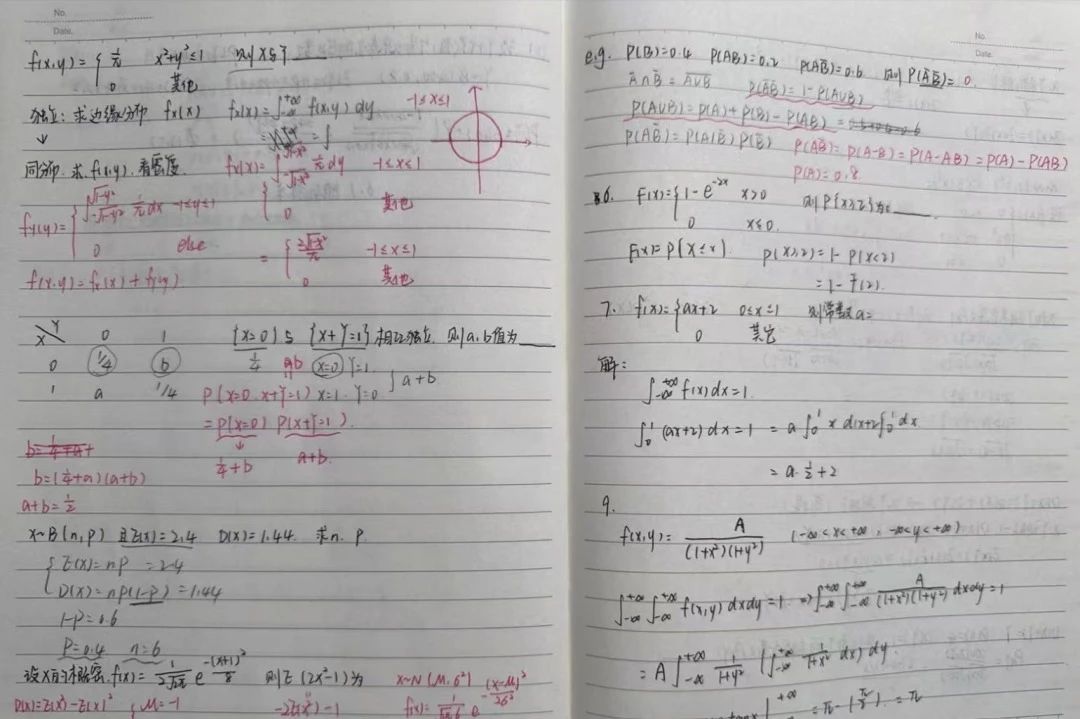 No.
Date.
f(x,y)= { 1/π x²+y²≤1 则X与Y ____
0 其他
独立：求边缘分布 fx(x) fx(x)=∫_{-∞}^{+∞} f(x,y) dy -1≤x≤1
↓
同分布. 求 f(x,y). 看密度. fx(x)= { ∫_{-√1-x²}^{√1-x²} 1/π dy -1≤x≤1
0 其他
fy(y)= { ∫_{-√1-y²}^{√1-y²} 1/π dx -1≤y≤1
0 else
= { 2√1-x²/π -1≤x≤1
0 其他
f(x,y)=fx(x)+fy(y)
X Y 0 1 {x=0}与{x+Y=1}相互独立, 则a、b值为____
0 1/4 b 1/4 ab x=0 Y=1
1 a 1/4 P(x=0. x+Y=1) x=1. Y=0 } a+b
=P(x=0) P(x+Y=1).
↓
1/4+b a+b.
b=(1/4+a)(a+b)
a+b=1/2
X~B(n,p) 且E(x)=2.4 D(x)=1.44. 求n. p.
{ E(x)=np =2.4
D(x)=np(1-p)=1.44
1-p=0.6
P=0.4 n=6
设X的概密. f(x)= 1/2√2π e^{-(x+1)²/8} 则E(2x²-1)为 x~N(μ.σ²)
D(x)=E(x²)-E(x)² { μ=-1 -2E(x²)-1
No.
Date.
e.g. P(B)=0.4 P(AB)=0.2 P(AB̄)=0.6 则P(ĀB̄)= 0.
P(ĀB̄)=1-P(A∪B)
P(A∪B)=P(A)+P(B)-P(AB)
P(AB̄)=P(A|B̄)P(B̄) P(AB̄)=P(A-B)=P(A-AB)=P(A)-P(AB)
P(A)=0.8
6. F(x)= { 1-e^{-2x} x>0 则P{x>2}为____.
0 x≤0.
F(x)=P{X≤x}. P(x>2)=1-P(x<2)
=1-F(2).
7. f(x)= { ax+2 0≤x≤1 则常数a=
0 其它
解:
∫_{-∞}^{+∞} f(x)dx=1.
∫_0^1 (ax+2)dx=1 = a∫_0^1 x dx+2∫_0^1 dx
= a·1/2+2
9.
f(x,y)= A/(1+x²)(1+y²) (-∞<x<+∞, -∞<y<+∞)
∫_{-∞}^{+∞}∫_{-∞}^{+∞} f(x,y)dxdy=1 ⇒ ∫_{-∞}^{+∞}∫_{-∞}^{+∞} A/(1+x²)(1+y²) dxdy=1
= A∫_{-∞}^{+∞} 1/1+y² (∫_{-∞}^{+∞} 1/1+x² dx) dy.